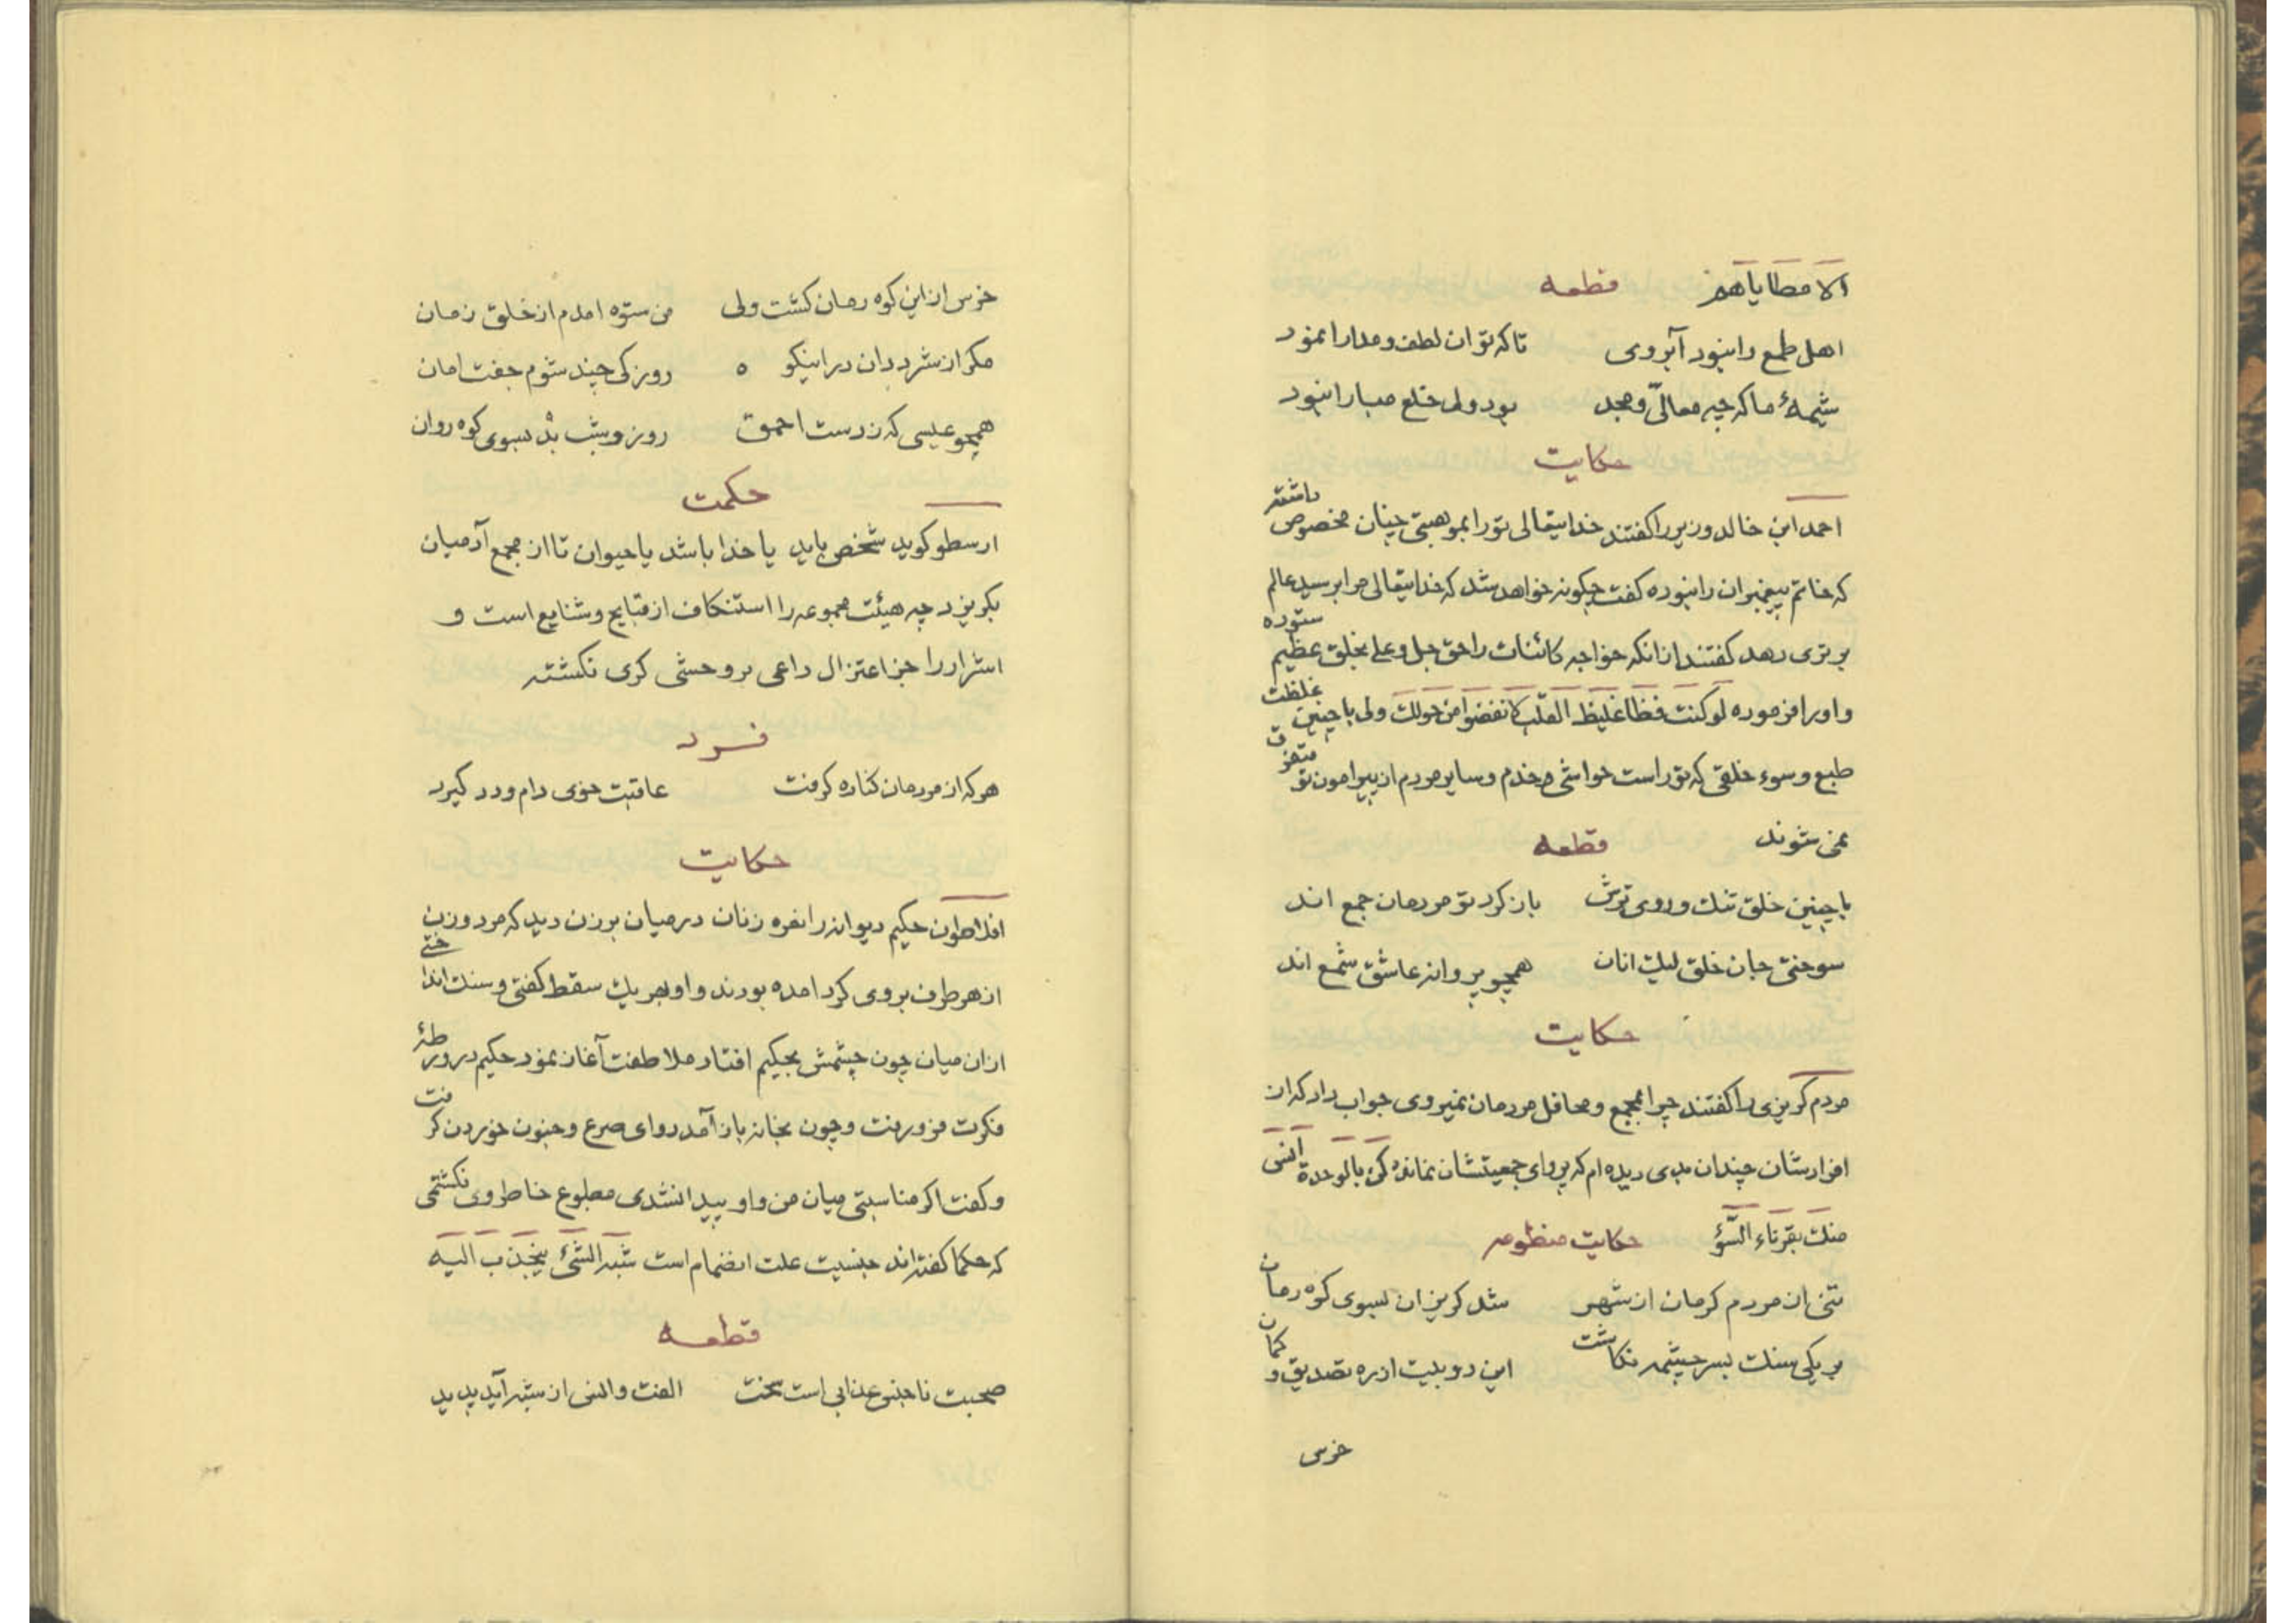 الا مطایاهم قطعه
اهل طمع را نبود آبروی تا که توان لطف و مدارا نمود
شیمهٔ ما کرچه معالیّ و مجد بود ولی خلع مبارا نبود
حکایت
احمد ابن خالد وزیر را کفتند خدایتعالی تو را بموهبتی چنان مخصوص داشته
که خاتم پیغمبران را نبوده کفت چکونه خواهد شد که خدایتعالی مرا بر سید عالم
برتری دهد کفتند از انکه خواجه کائنات را حق جل و علی بخلق عظیم ستوده
و او را فرموده لو کنت فظا غلیظ القلب لانفضوا من حولک ولی با چنین غلظت
طبع و سوء خلقی که تو راست حواشی و خدم و سایر مردم از پیرامون تو متفرق
نمی شوند قطعه
با چنین خلق تنک و روی ترش باز کرد تو مردمان جمع اند
سوختی جان خلق لیک انان همچو پروانه عاشق شمع اند
حکایت
مردم کریزی را کفتند چرا بمجمع و محافل مردمان نمیروی جواب داد که از
افرادشان چندان بدی دیده ام که پروای جمعیتشان نمانده کن بالوحدة انس
منک بقرناء السّؤ حکایت منظومه
تنی از مردم کرمان از شهر شد کریزان بسوی کوه رمان
بر یکی سنک بسر چشمه نکاشت این دو بیت از ره تصدیق و کمان
خرس
خرس از این کوه رمان کشت ولی من ستوه امدم از خلق زمان
مکر از شر ددان در اینکو ه روزکی چند شوم جفت امان
همچو عیسی که ز دست احمق روز و شب بدْ بسوی کوه روان
حکمت
ارسطو کوید شخص باید یا خدا باشد یا حیوان تا از مجمع آدمیان
بکریزد چه هیئت مجموعه را استنکاف از قبایح و شنایع است و
اشرار را جز اعتزال داعی بر وحشی کری نکشته
فرد
هر که از مردمان کناره کرفت عاقبت خوی دام و دد کیرد
حکایت
افلاطون حکیم دیوانه را نعره زنان در میان برزن دید که مرد و زن
از هر طرف بر وی کرد امده بودند و او بهر یک سقط کفتی و سنک انداختی
ازان میان چون چشمش بحکیم افتاد ملاطفت آغاز نمود حکیم در ورطهٔ
فکرت فرو رفت و چون بخانه باز آمد دوای صرع و جنون خوردن کرفت
و کفت اکر مناسبتی میان من و او پیدا نشدی مطبوع خاطر وی نکشتمی
که حکما کفته اند جنسیت علت انضمام است شبه الشئ ینجذب الیه
قطعه
صحبت ناجنس عذابی است سخت الفت و النس از شبه آید پدید